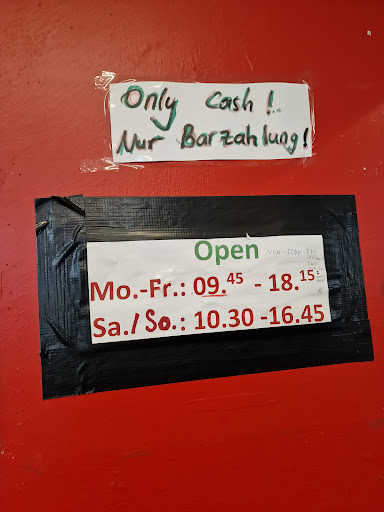 Only Cash!
Nur Barzahlung!
Open
Mo.-Fr.: 09.45 - 18.15
Sa./So.: 10.30 -16.45